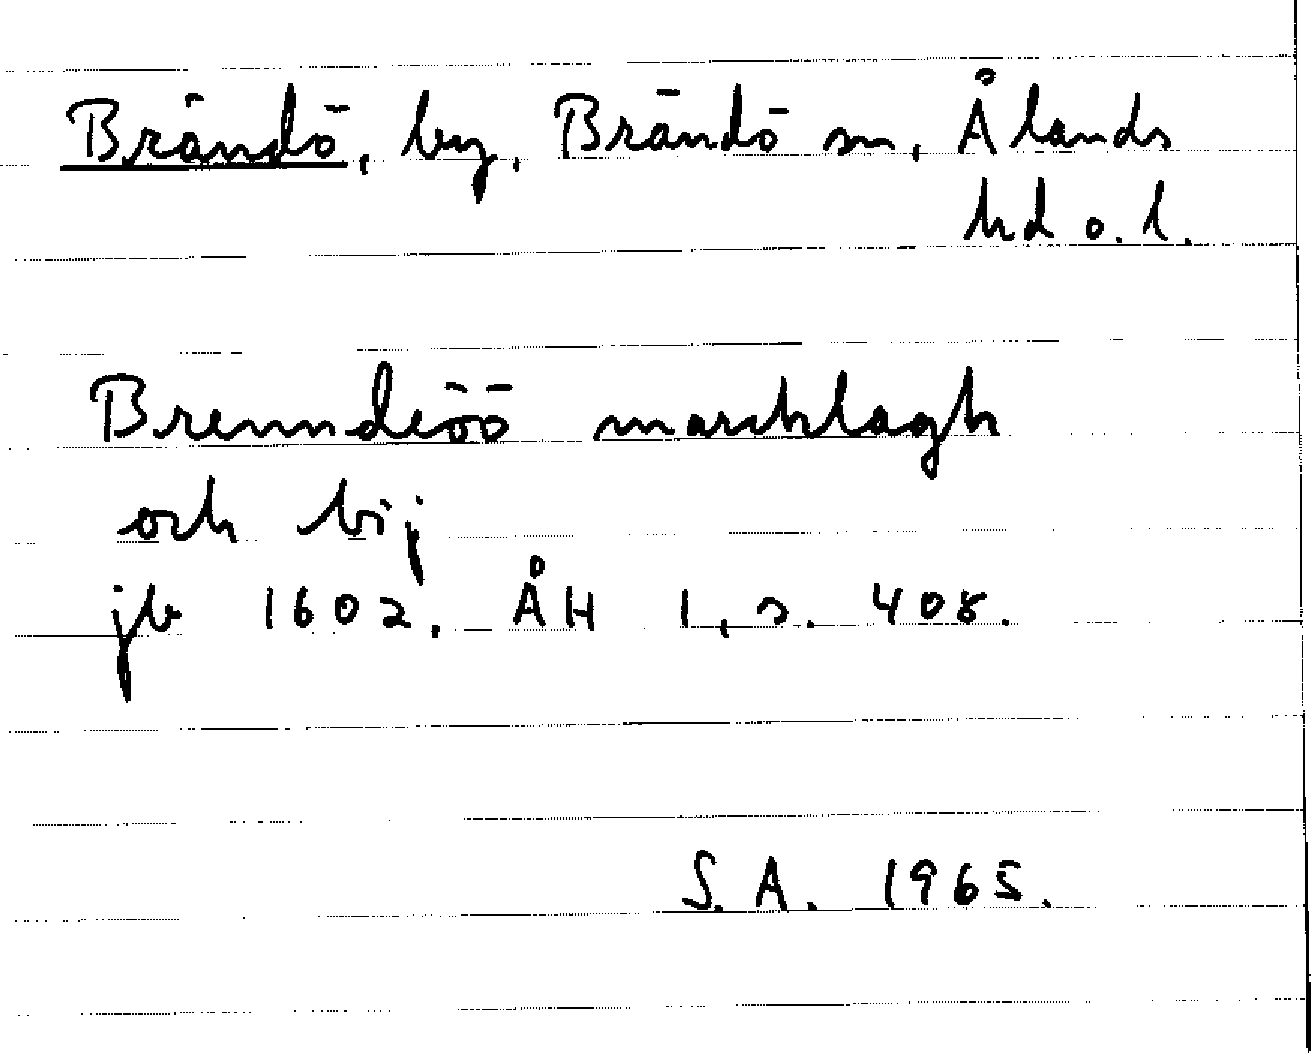 Brändö, by, Brändö sn, Ålands
hd o. l.
Brenndeöö marcklagh
och bij
jb 1602. ÅH 1, s. 408.
S.A. 1965.